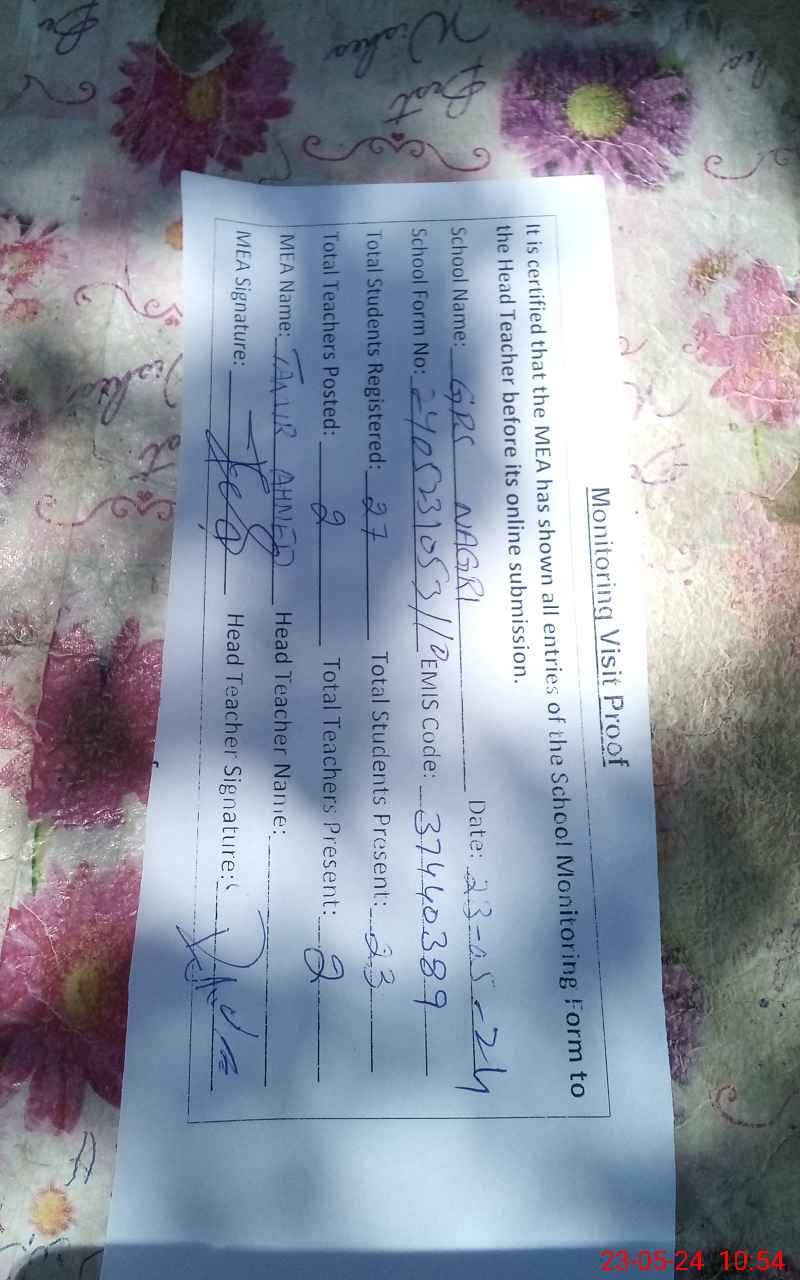 Monitoring Visit Proof
It is certified that the MEA has shown all entries of the School Monitoring Form to
the Head Teacher before its online submission.
School Name: GPS NAGRI Date: 23-05-24
School Form No: EMIS Code: 37440389
Total Students Registered: 27 Total Students Present: 23
Total Teachers Posted: 2 Total Teachers Present: 2
MEA Name: AHMED Head Teacher Name:
MEA Signature: Head Teacher Signature:
Best
Wishes
23-05-24 10:54